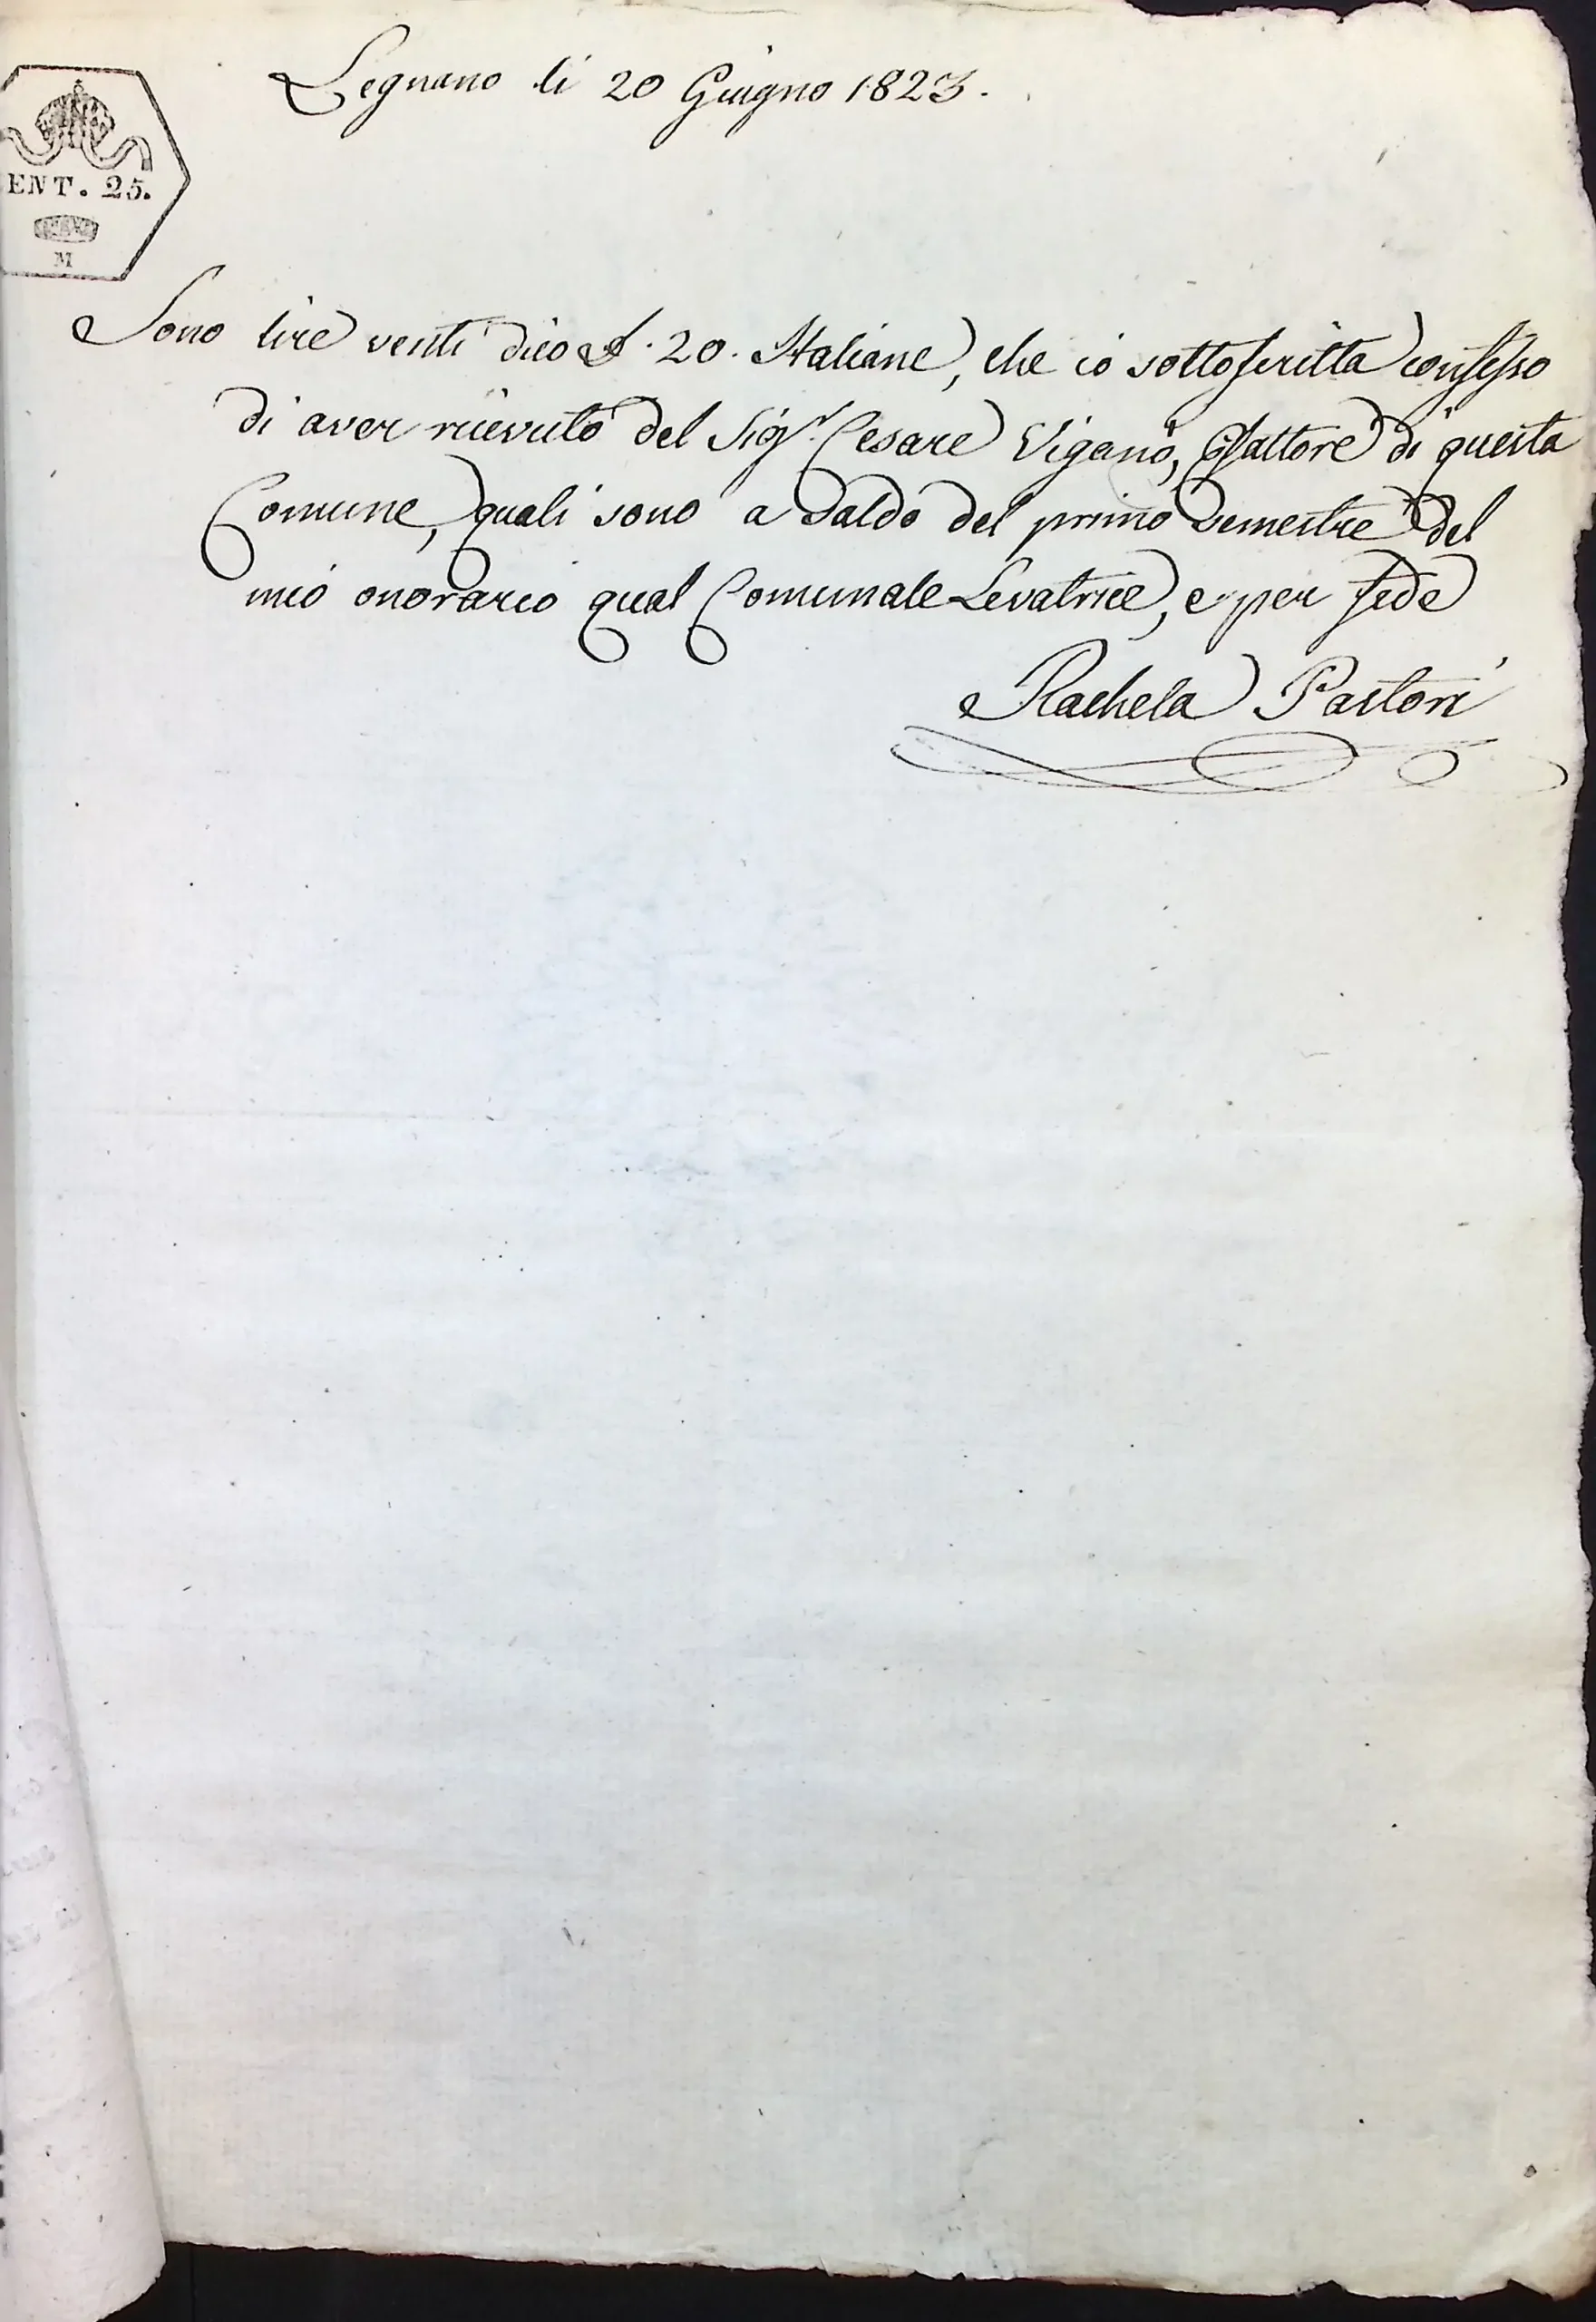 Legnano li 20 Giugno 1823.
ENT. 25.
M
Sono lire venti dico £. 20. Italiane, che io sottoscritta confesso
di aver ricevuto del Sigr. Cesare Viganò, Esattore di questa
Comune, quali sono a Saldo del primo Semestre del
mio onorario qual Comunale Levatrice, e per fede
Rachela Pastori